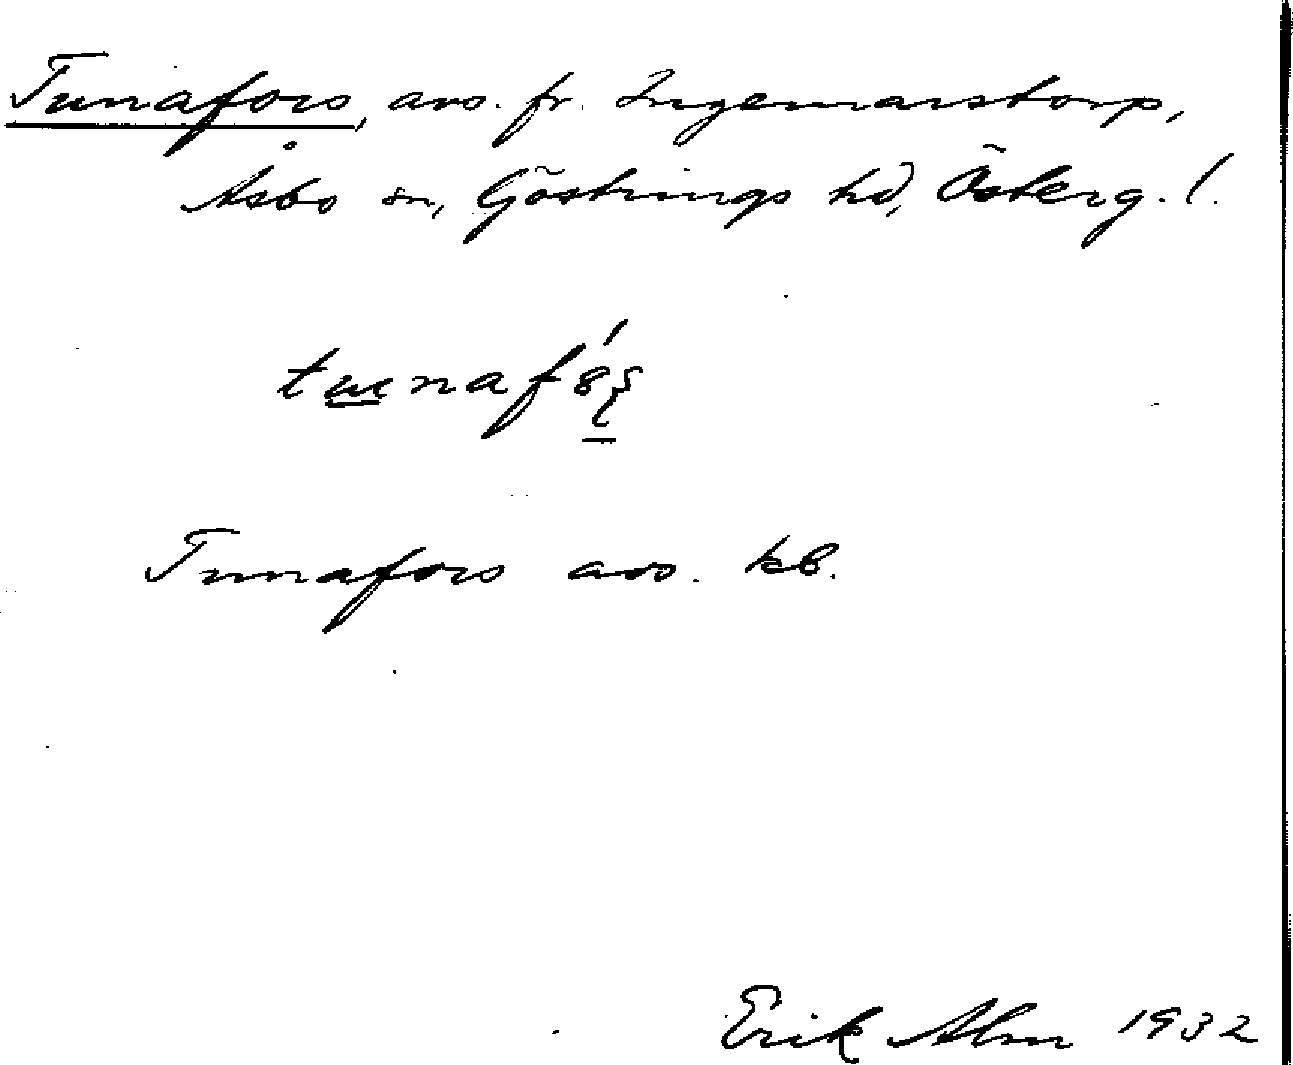 Tunafors, avs. fr. Ingemarstorp,
Åsbo sn, Göstrings hd, Österg. l.
Tunafors avs. kb.
Erik Alm 1932